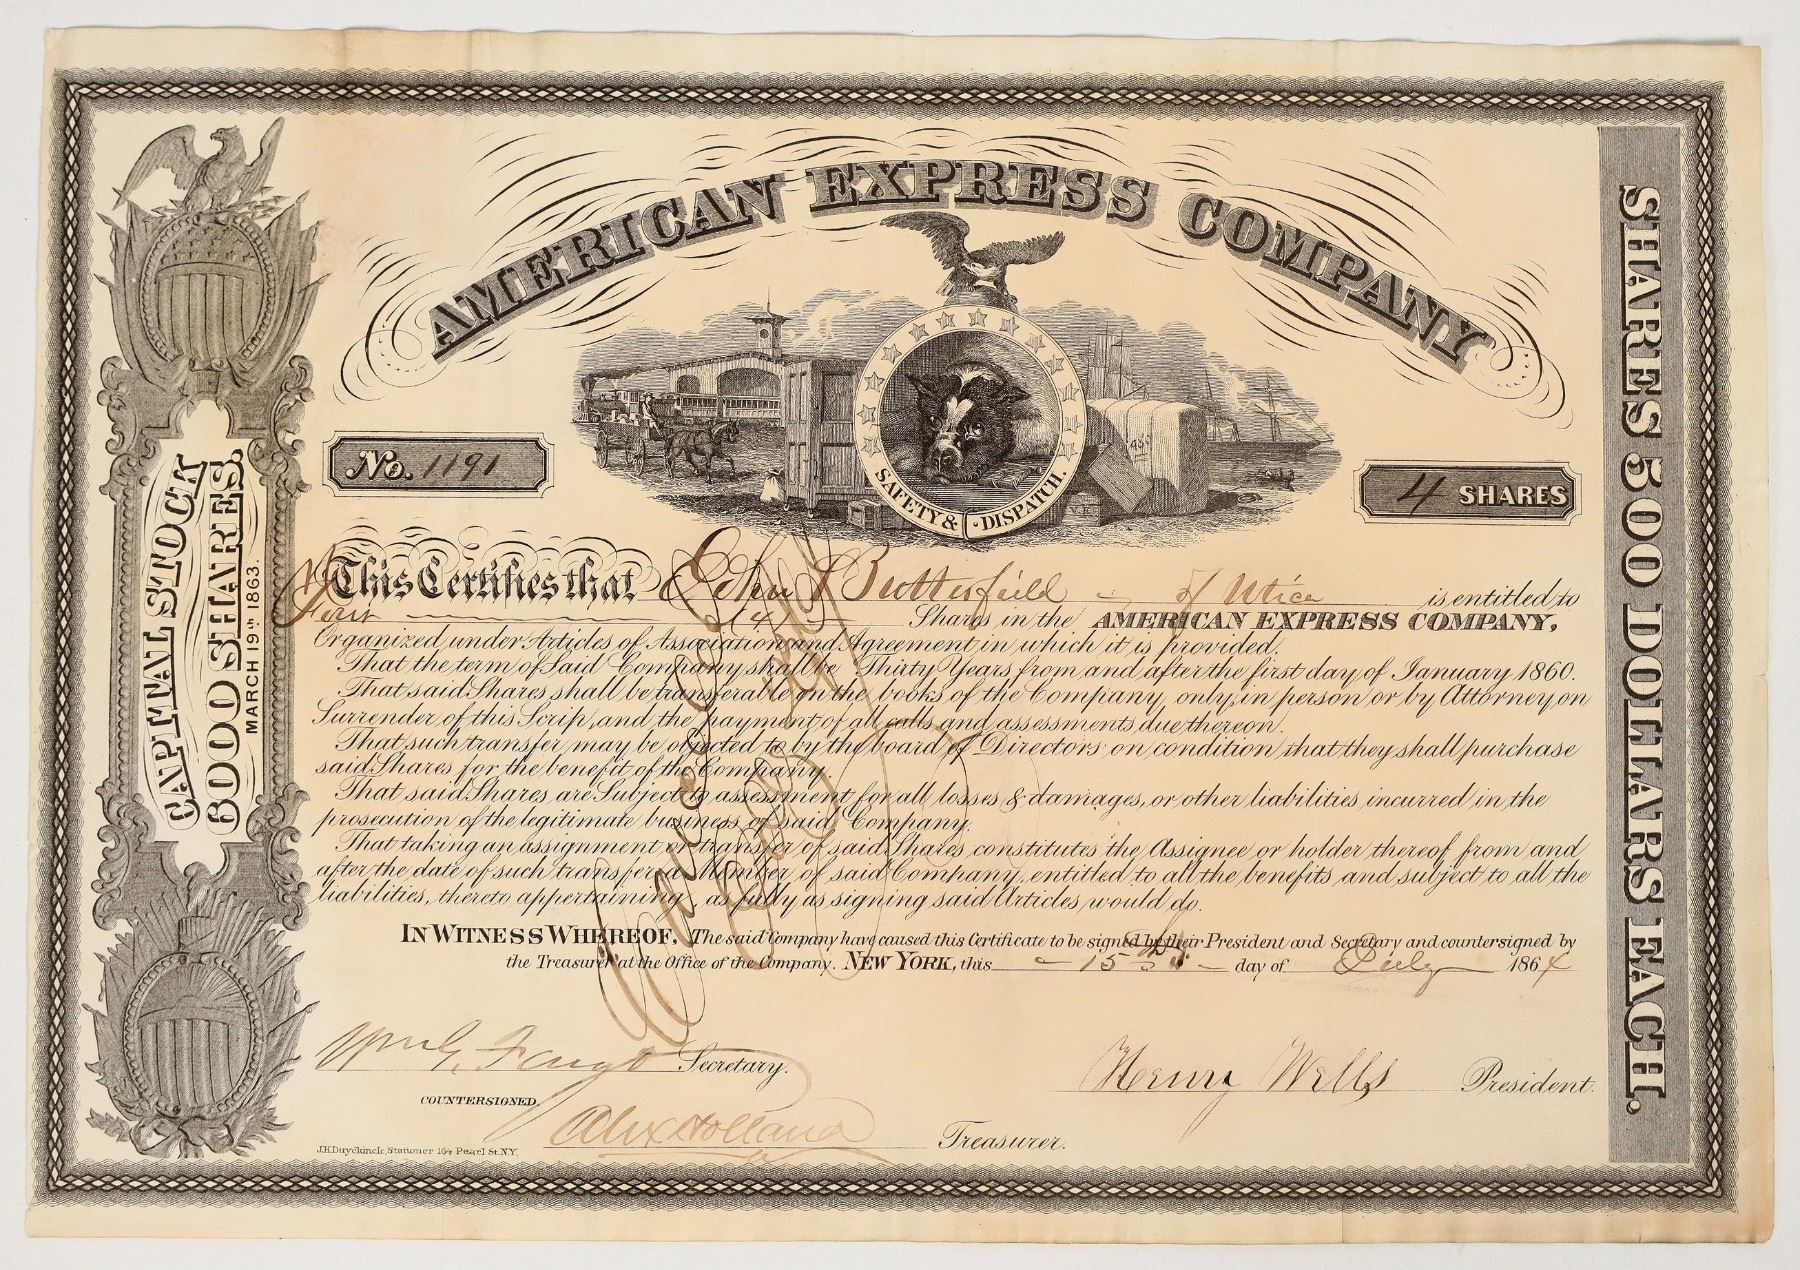 AMERICAN EXPRESS COMPANY
SAFETY & DISPATCH.
No. 1191
4 SHARES
CAPITAL STOCK
6000 SHARES.
MARCH 19th 1863.
SHARES 500 DOLLARS EACH.
This Certifies that John Butterfield of Utica is entitled to
Four (4) Shares in the AMERICAN EXPRESS COMPANY,
Organized under Articles of Association and Agreement in which it is provided.
That the term of said Company shall be Thirty Years from and after the first day of January 1860.
That said Shares shall be transferable on the books of the Company, only, in person or by Attorney on
Surrender of this Scrip, and the payment of all calls and assessments due thereon.
That such transfer may be objected to by the board of Directors on condition that they shall purchase
said Shares for the benefit of the Company.
That said Shares are Subject to assessment for all losses & damages, or other liabilities incurred in the
prosecution of the legitimate business of said Company.
That taking an assignment or transfer of said Shares constitutes the Assignee or holder thereof from and
after the date of such transfer a Member of said Company, entitled to all the benefits and subject to all the
liabilities, thereto appertaining, as fully as signing said Articles would do.
IN WITNESS WHEREOF, The said Company have caused this Certificate to be signed by their President and Secretary and countersigned by
the Treasurer at the Office of the Company. NEW YORK, this 15th day of July 1864
Wm G. Fargo Secretary.
Henry Wells President.
COUNTERSIGNED,
Alex Holland Treasurer.
J.H. Duyckinck, Stationer 164 Pearl St. NY.